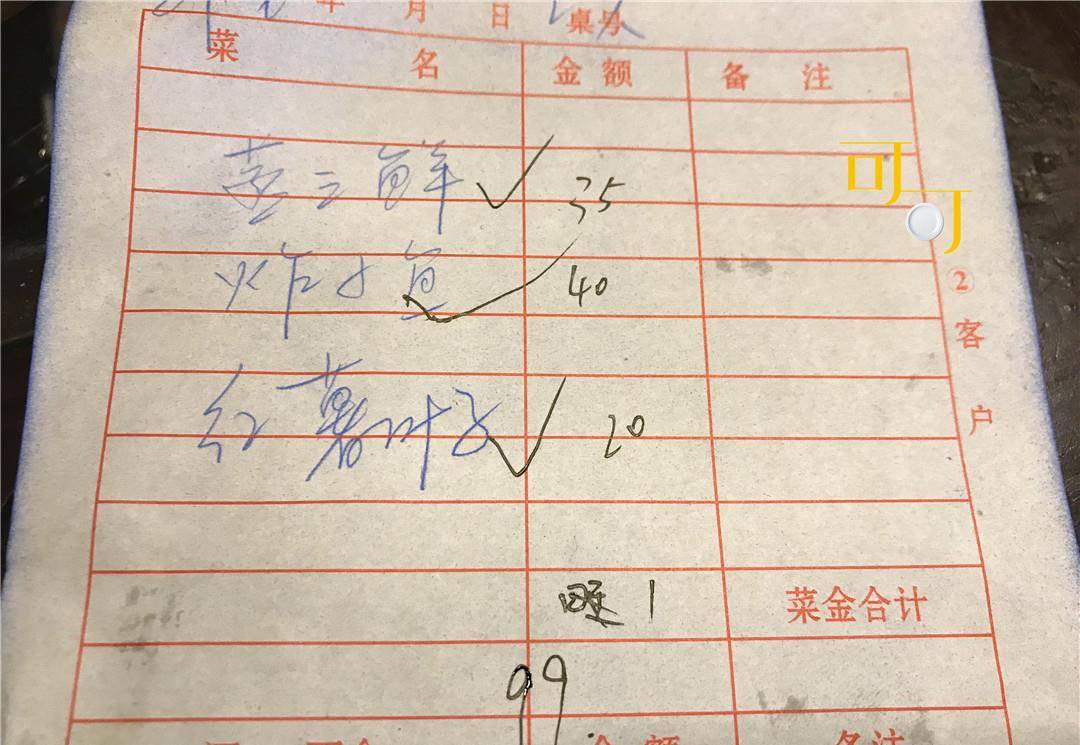 年 月 日 桌号
菜 名 金额 备注
蒸三鲜 35
炸小鱼 40
红薯叶子 20
菜金合计
99
可可
②客户
金额 备注